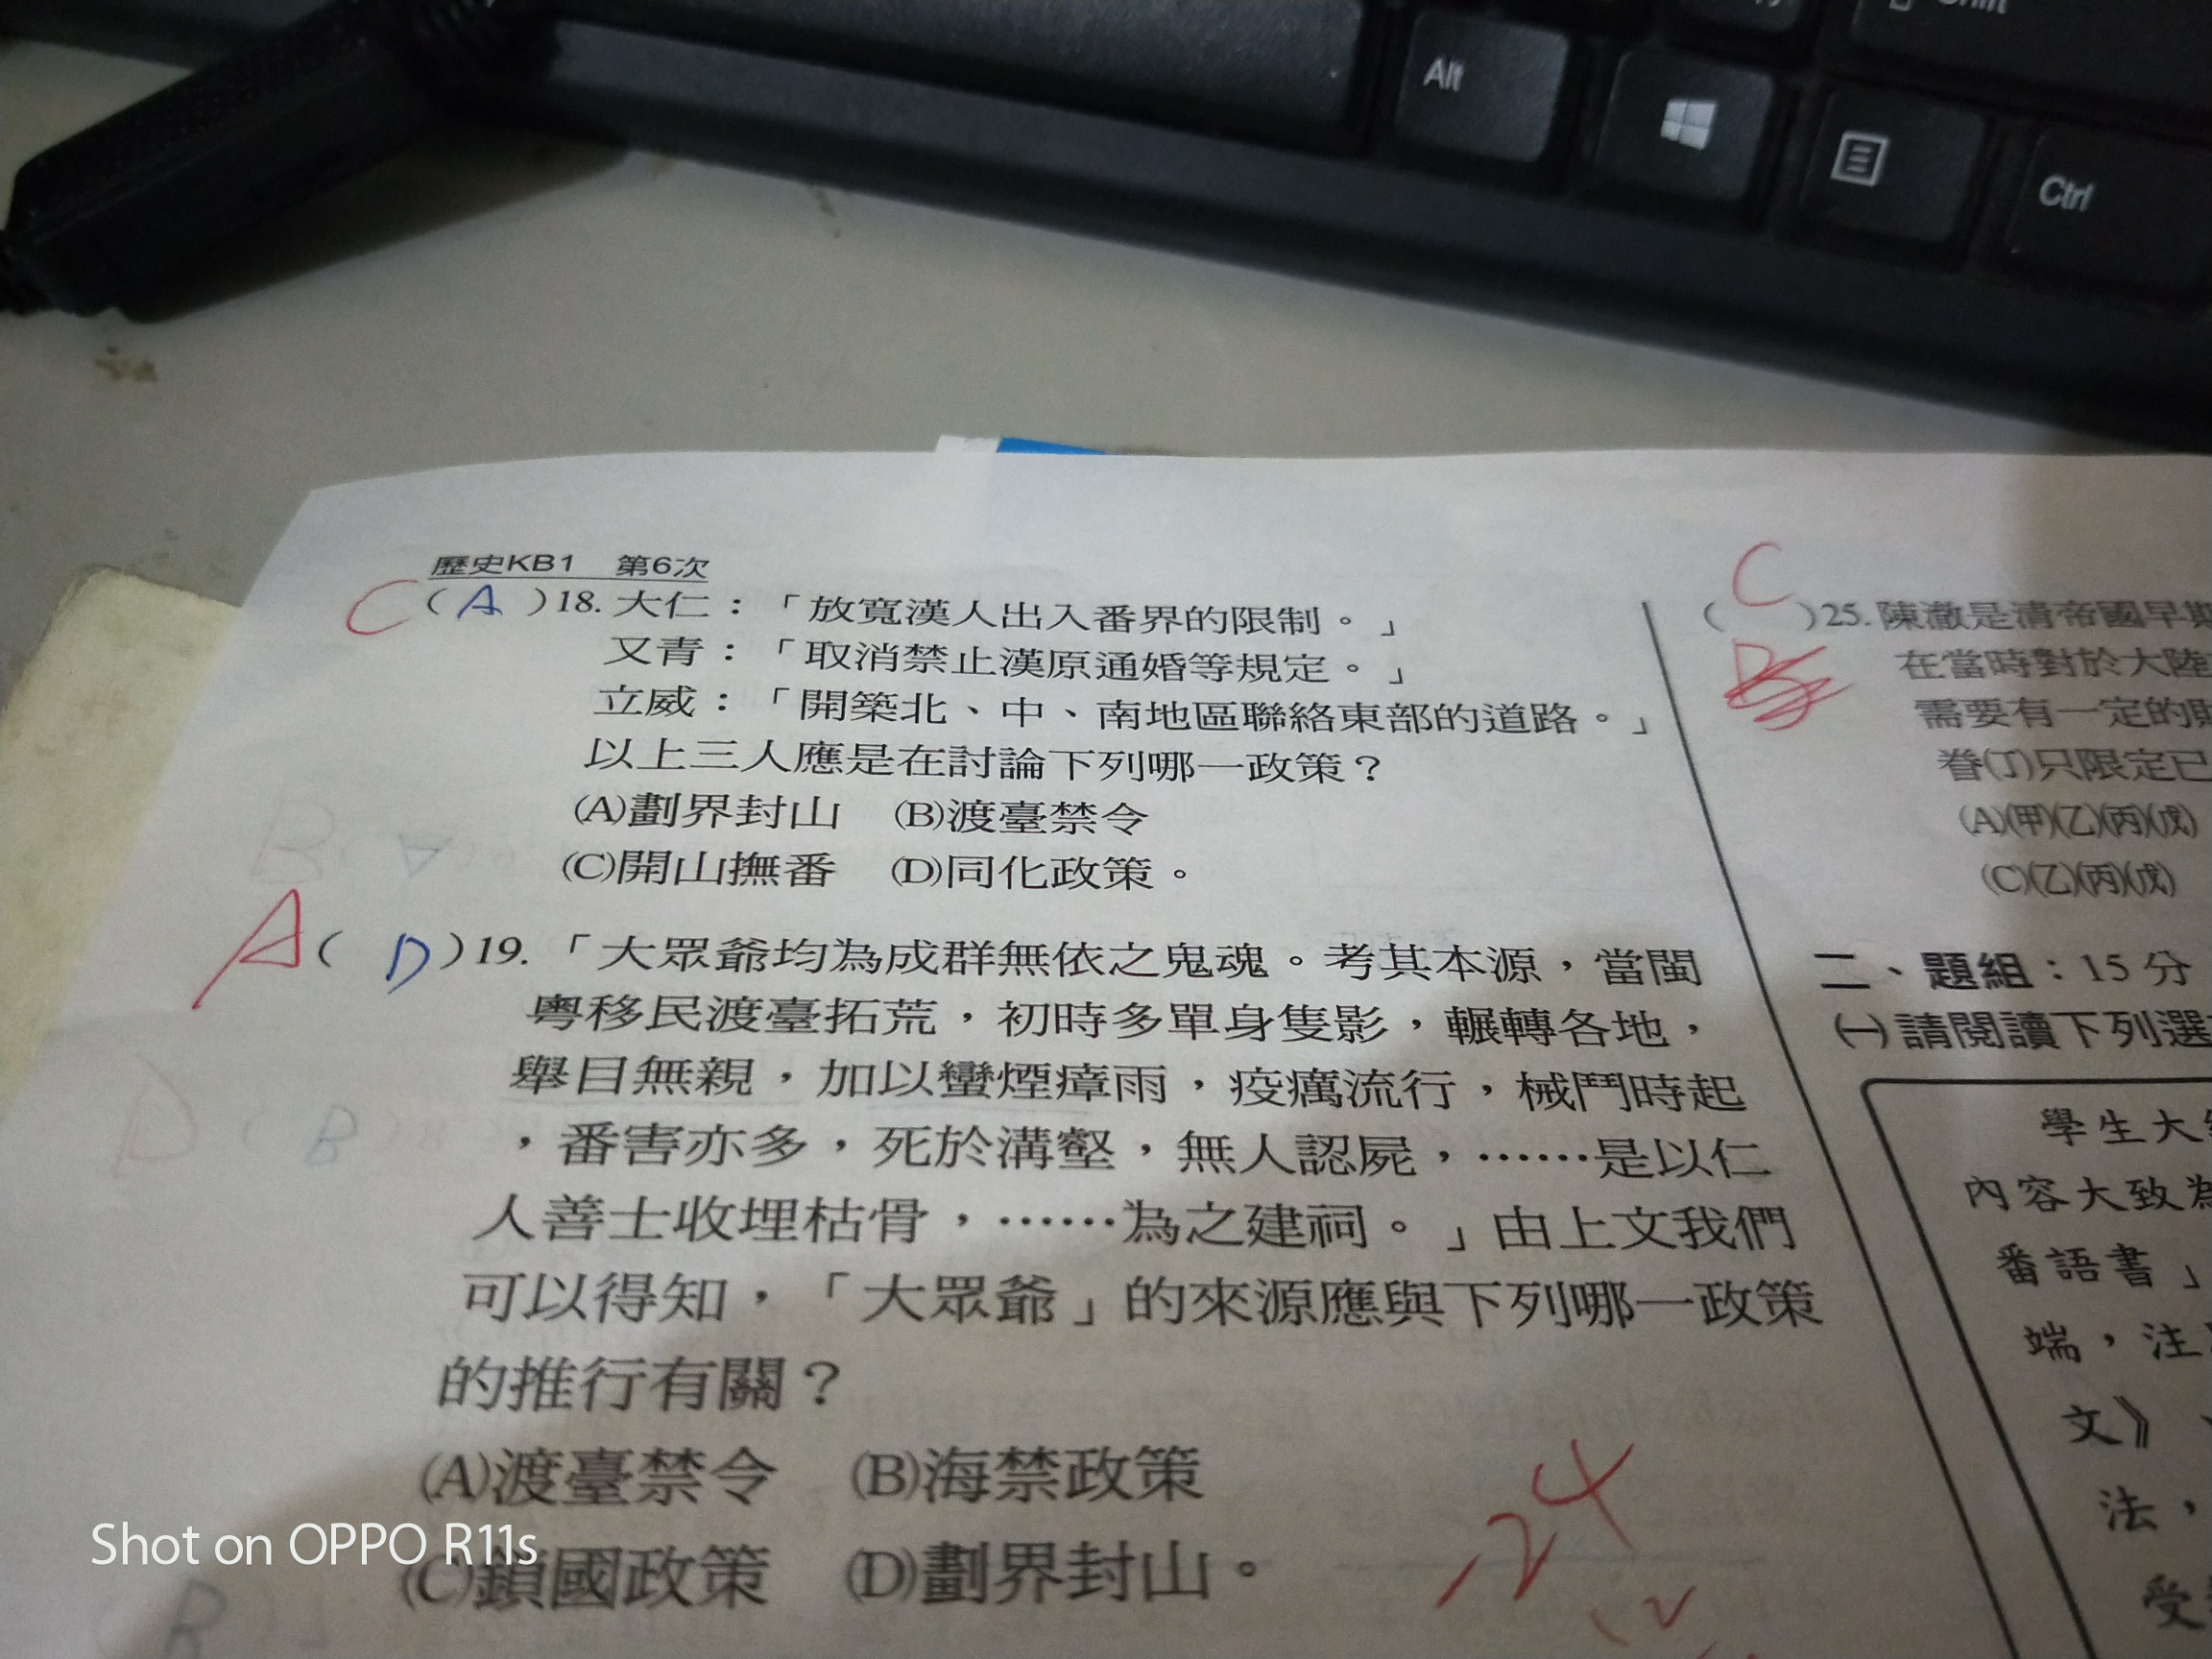 Alt
Shift
Ctrl
歷史KB1 第6次
C(A)18. 大仁：「放寬漢人出入番界的限制。」
又青：「取消禁止漢原通婚等規定。」
立威：「開築北、中、南地區聯絡東部的道路。」
以上三人應是在討論下列哪一政策？
(A)劃界封山 (B)渡臺禁令
(C)開山撫番 (D)同化政策。
A(D)19. 「大眾爺均為成群無依之鬼魂。考其本源，當閩
粵移民渡臺拓荒，初時多單身隻影，輾轉各地，
舉目無親，加以蠻煙瘴雨，疫癘流行，械鬥時起
，番害亦多，死於溝壑，無人認屍，⋯⋯是以仁
人善士收埋枯骨，⋯⋯為之建祠。」由上文我們
可以得知，「大眾爺」的來源應與下列哪一政策
的推行有關？
(A)渡臺禁令 (B)海禁政策
(C)鎖國政策 (D)劃界封山。
-24
12
C
( )25. 陳澈是清帝國早期
在當時對於大陸
需要有一定的
眷(丁)只限定已
(A)(甲)(乙)(丙)(戊)
(C)(乙)(丙)(戊)
二、題組：15分
㈠請閱讀下列選
學生大
內容大致為
番語書」
端，注
文》、
法，
受
Shot on OPPO R11s